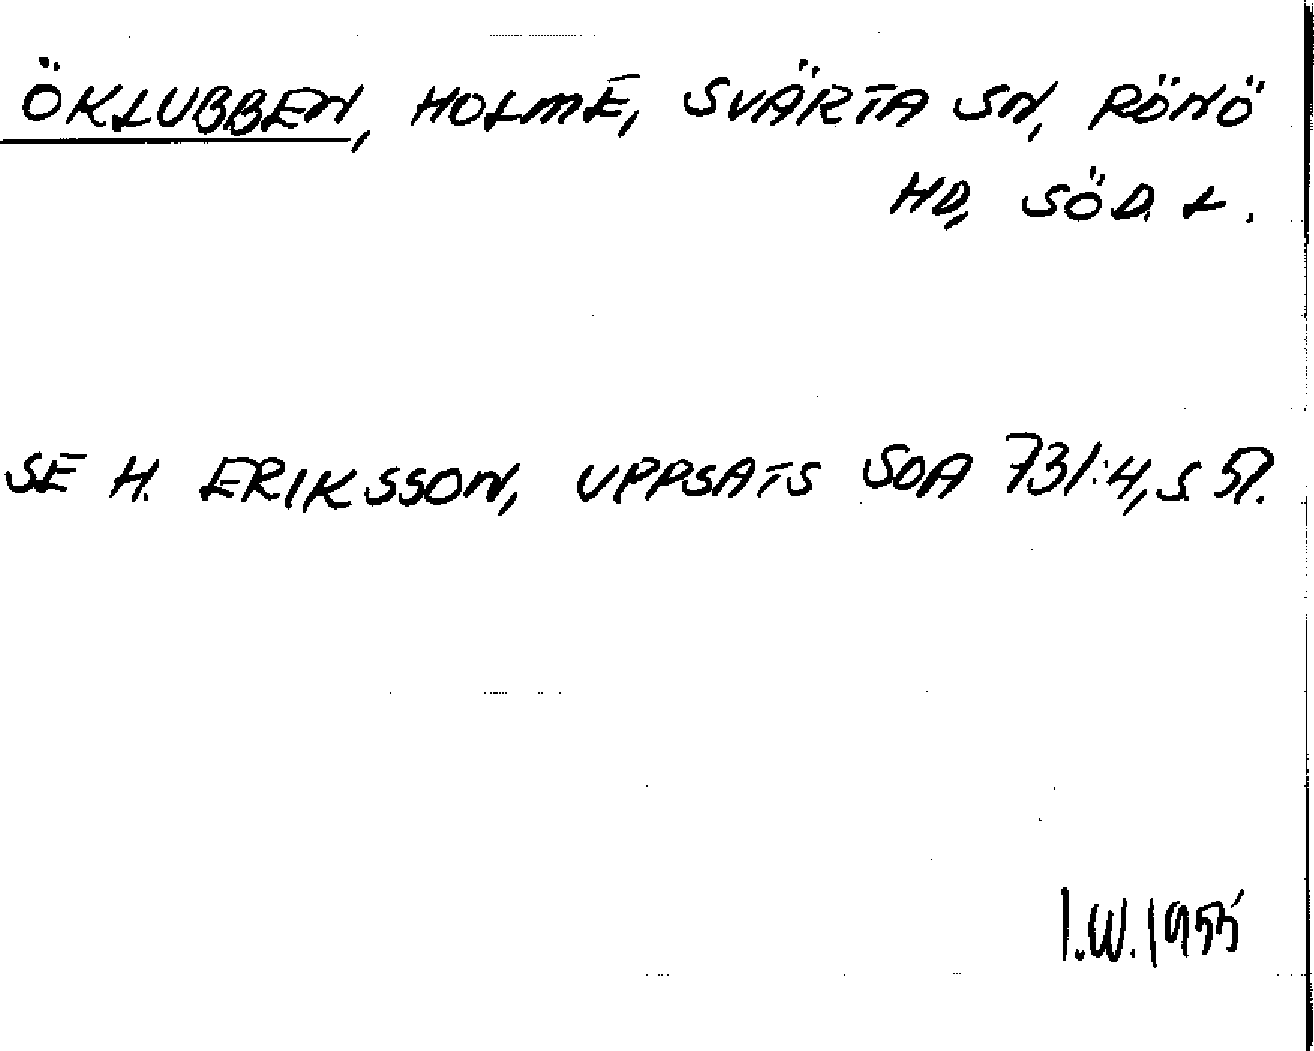 ÖKLUBBEN, HOLME, SVÄRTA SN, RÖNÖ
HD, SÖD. L.
SE H. ERIKSSON, UPPSATS SOA 731:4, S. 57.
I.W. 1955